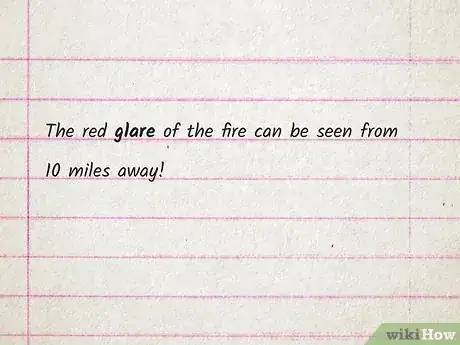 The red glare of the fire can be seen from
10 miles away!
wikiHow